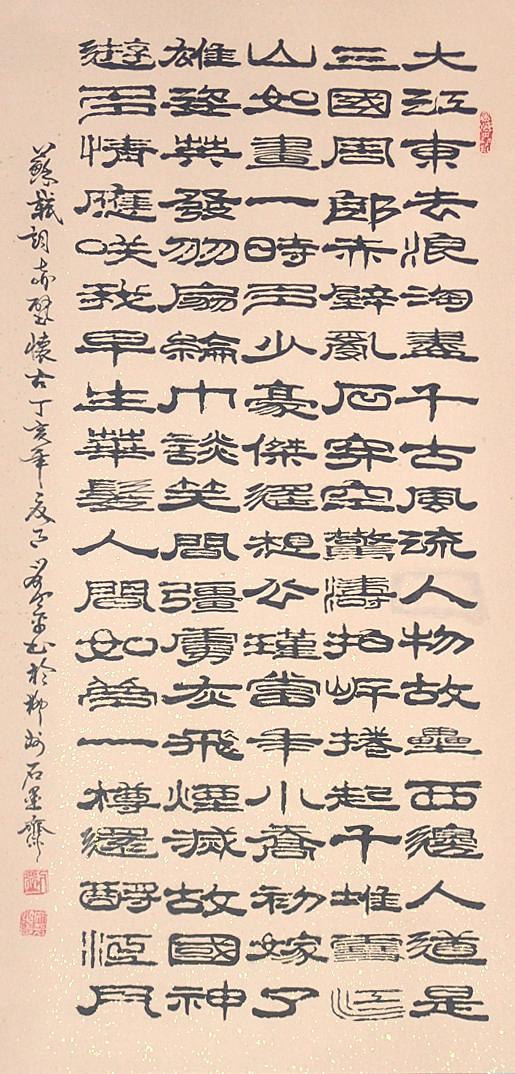 大江東去浪淘盡千古風流人物故壘西邊人道是
三國周郎赤壁亂石穿空驚濤拍岸捲起千堆雪江
山如畫一時多少豪傑遙想公瑾當年小喬初嫁了
雄姿英發羽扇綸巾談笑間彊虜灰飛煙滅故國神
遊多情應咲我早生華髮人間如夢一樽還酹江月
蘇軾詞赤壁懷古丁亥年夏月書於柳州石墨齋